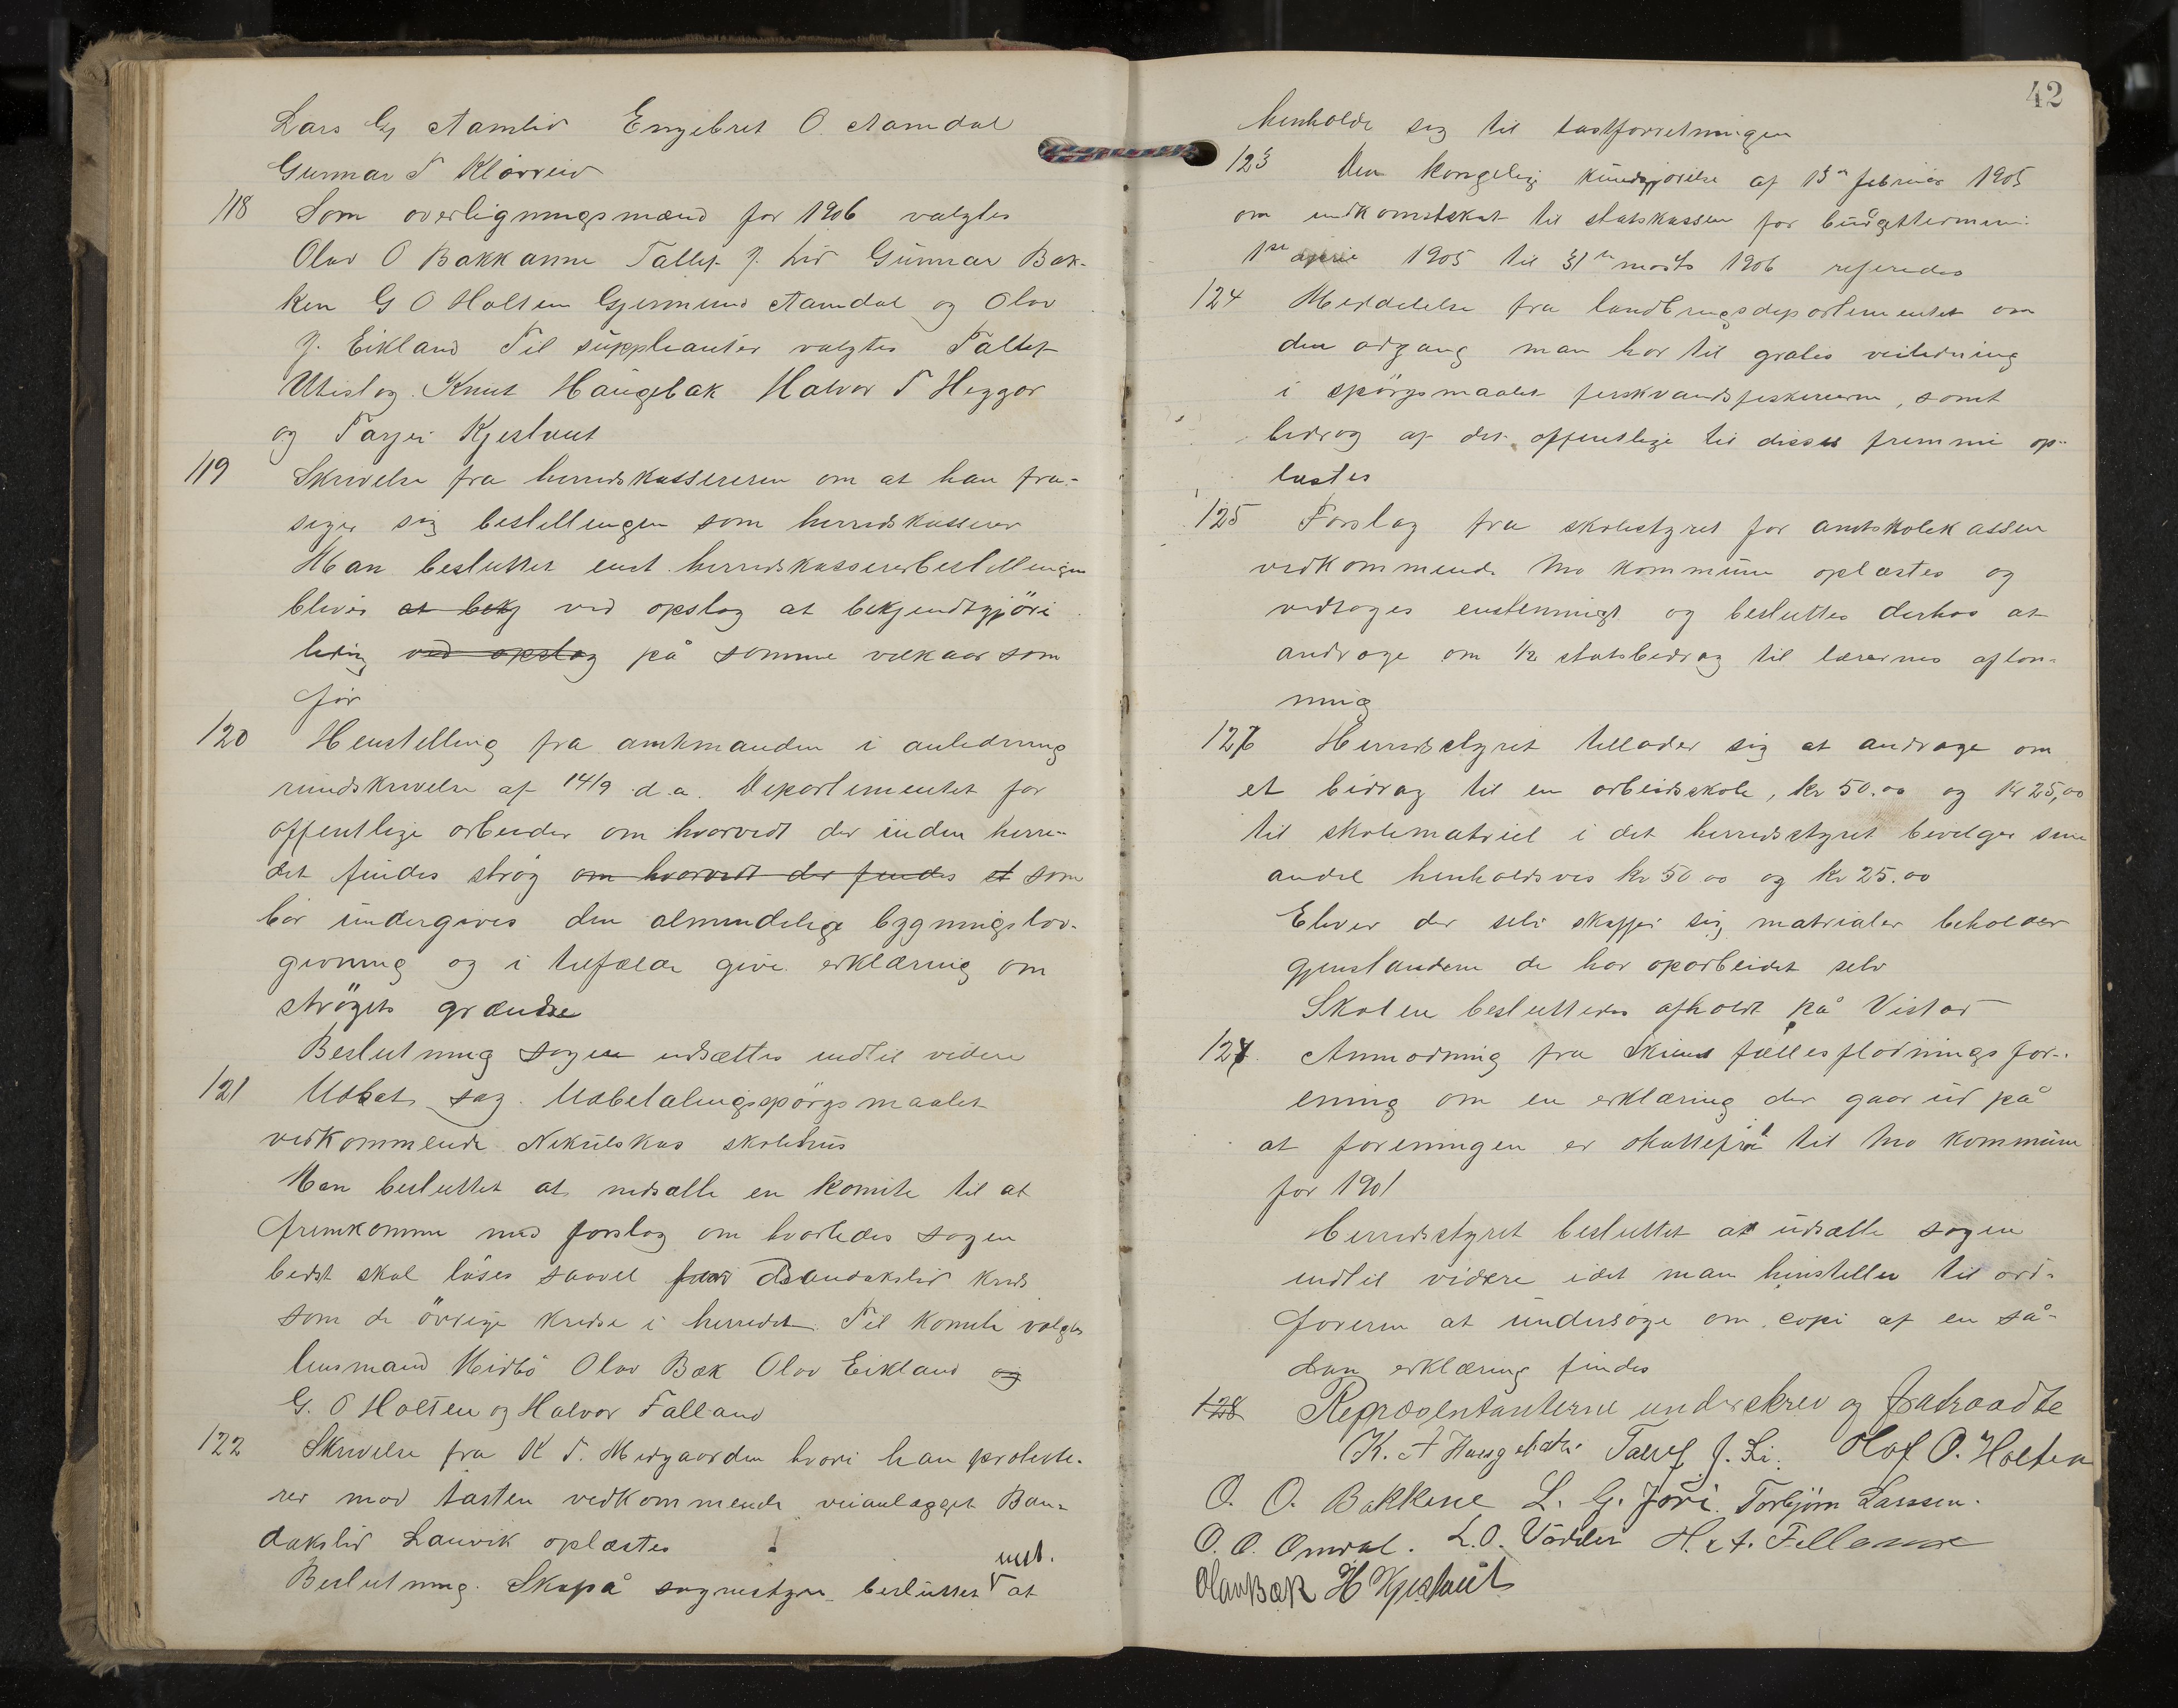 Lars G Aamlid Engebret O. Aamdal
Gunnar T Kløvreid
118 Som overligningsmænd for 1906 valgtes
Olav O Bakkanne Tallef J. Lid Gunnar Bak-
ken G O Holten Gjermund Aamdal og Olav
J. Eikland Til suppleanter valgtes Tallef
Utistog Knut Haugebak Halvor T Heggor
og Tarjei Kjeslaut
119 Skrivelse fra herredskassereren om at han fra-
siger sig bestillingen som herredskasserer
Man besluttet enst. herredskassererbestillingen
bliver at bekj ved opslag at bekjendtgjöre
ledig ved opslag på samme vilkaar som
før
120 Henstilling fra amtmanden i anledning
rundskrivelse af 14/9 d.a. Departementet for
offentlige arbeider om hvorvidt der inden herre-
det findes strøg om hvorvidt der findes et som
bör undergives den almindelige bygningslov-
givning og i tilfælde give erklæring om
strögets grændse
Beslutning sagen udsættes indtil videre
121 Udsat sag. Udbetalingsspörgsmaalet
vedkommende Nikulskas skolehus
Man besluttet at nedsætte en komite til at
fremkomme med forslag om hvorledes sagen
bedst skal löses saavel for Bandakslid kreds
som de övrige kredse i herredet. Til komite valgtes
lensmand Midbö Olav Bæk Olav Eikland og
G. O Holten og Halvor Falland
122 Skrivelse fra K T. Midgaarden hvori han proteste-
rer mod tasten vedkommende veianlægget Ban-
dakslid Lauvik oplæstes
Beslutning. Skapå sognestyre besluttet enst. at
42
henholde sig til tastforretningen
123 Den kongelig kundgjörelse af 13de februar 1905
om indkomstskat til statskassen for budgettermin
1ste april 1905 til 31te marts 1906 referedes
124 Meddelelse fra landbrugsdepartementet om
den adgang man har til gratis veiledning
i spörgsmaalet ferskvandsfiskerierne, samt
bidrag af det offentlige til disses fremme op-
læstes
125 Forslag fra skolestyret for amtskolekassen
vedkommende Mo kommune oplæstes og
vedtoges enstemmigt og besluttes derhos at
andrage om 1/2 statsbidrag til lærernes aflön-
ning
126 Herredsstyret tillader sig at andrage om
et bidrag til en arbeidsskole, kr 50.00 og kr 25,00
til skolematriel i det herredsstyret bevilger sin
andel henholdsvis kr 50 00 og kr 25.00
Elever der selv skaffer sig matrialer beholder
gjenstandene de har oparbeidet selv
Skolen besluttedes afholdt på Vistad
127. Anmodning fra Skiens fællesflødningsfor-
ening om en erklæring der gaar ud på
at foreningen er skattefri til Mo kommune
for 1901
Herredsstyret besluttet at udsætte sagen
indtil videre idet man henstiller til ord-
føreren at undersøge om copi af en så-
dan erklæring findes
128 Repræsentanterne underskrev og fratraadte
K. A Haugebak Tallef J. Li. Olof O. Holten
O. O. Bakkene L. G. Jore Torbjörn Larssen.
O. O. Omdal. L. O. Vådder H. A. Felland
Olav Bæk H Kjeslaut